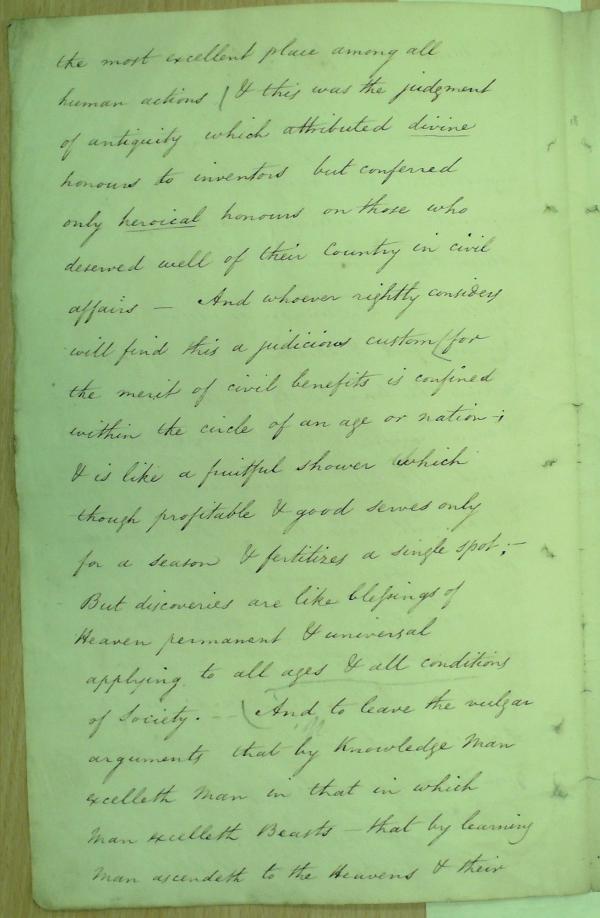 the most excellent place among all
human actions (& this was the judgment
of antiquity which attributed divine
honours to inventors but conferred
only heroical honours on those who
deserved well of their Country in civil
affairs — And whoever rightly considers
will find this a judicious custom (for
the merit of civil benefits is confined
within the circle of an age or nation -;
& is like a fruitful shower which
though profitable & good serves only
for a season & fertilizes a single spot; -
But discoveries are like blessings of
Heaven permanent & universal
applying to all ages & all conditions
of Society. - - (And to leave the vulgar
arguments that by Knowledge Man
excelleth Man in that in which
Man excelleth Beasts — that by learning
Man ascendeth to the Heavens & their